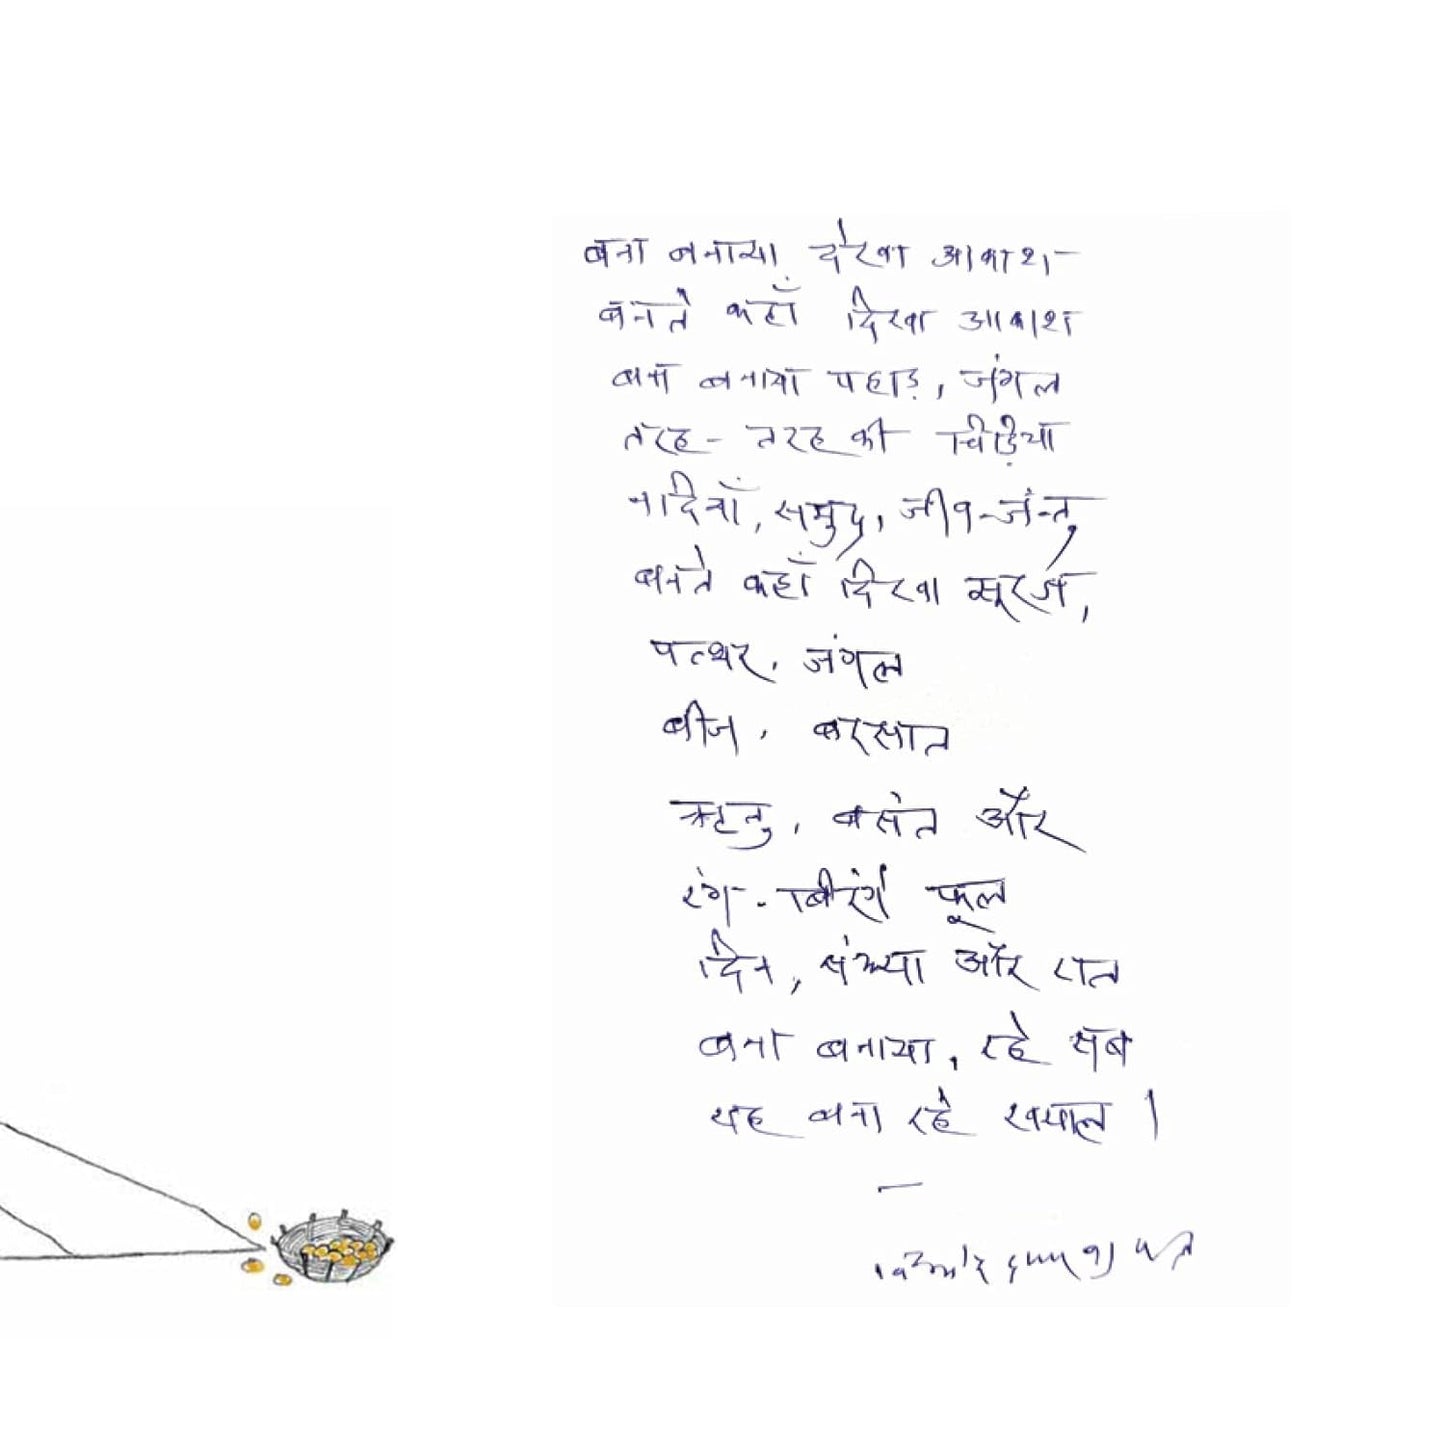 बना बनाया देखा आकाश
बनते कहाँ दिखा आकाश
बना बनाया पहाड़, जंगल
तरह - तरह की चिड़ियाँ
नदियाँ, समुद्र, जीव-जंन्तु
बनते कहाँ दिखा सूरज,
पत्थर, जंगल
बीज, बरसात
ऋतु, बसंत और
रंग-बिरंगे फूल
दिन, संध्या और रात
बना बनाया, रहे सब
यह बना रहे खयाल ।